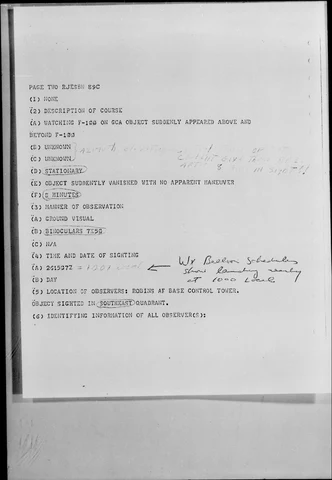 PAGE TWO RJESBH 89C
(1) NONE
(2) DESCRIPTION OF COURSE
(A) WATCHING F-100 ON GCA OBJECT SUDDENLY APPEARED ABOVE AND
BEYOND F-100
(B) UNKNOWN
(C) UNKNOWN
(D) STATIONARY
(E) OBJECT SUDDENTLY VANISHED WITH NO APPARENT MANEUVER
(F) 5 MINUTES
(3) MANNER OF OBSERVATION
(A) GROUND VISUAL
(B) BINOCULARS 7X50
(C) N/A
(4) TIME AND DATE OF SIGHTING
(A) Wx Balloon Schedules
show landing nearly
at 1000 Local
(B) DAY
(5) LOCATION OF OBSERVERS: ROBINS AF BASE CONTROL TOWER.
OBJECT SIGHTED IN SOUTHEAST QUADRANT.
(6) IDENTIFYING INFORMATION OF ALL OBSERVER(S):